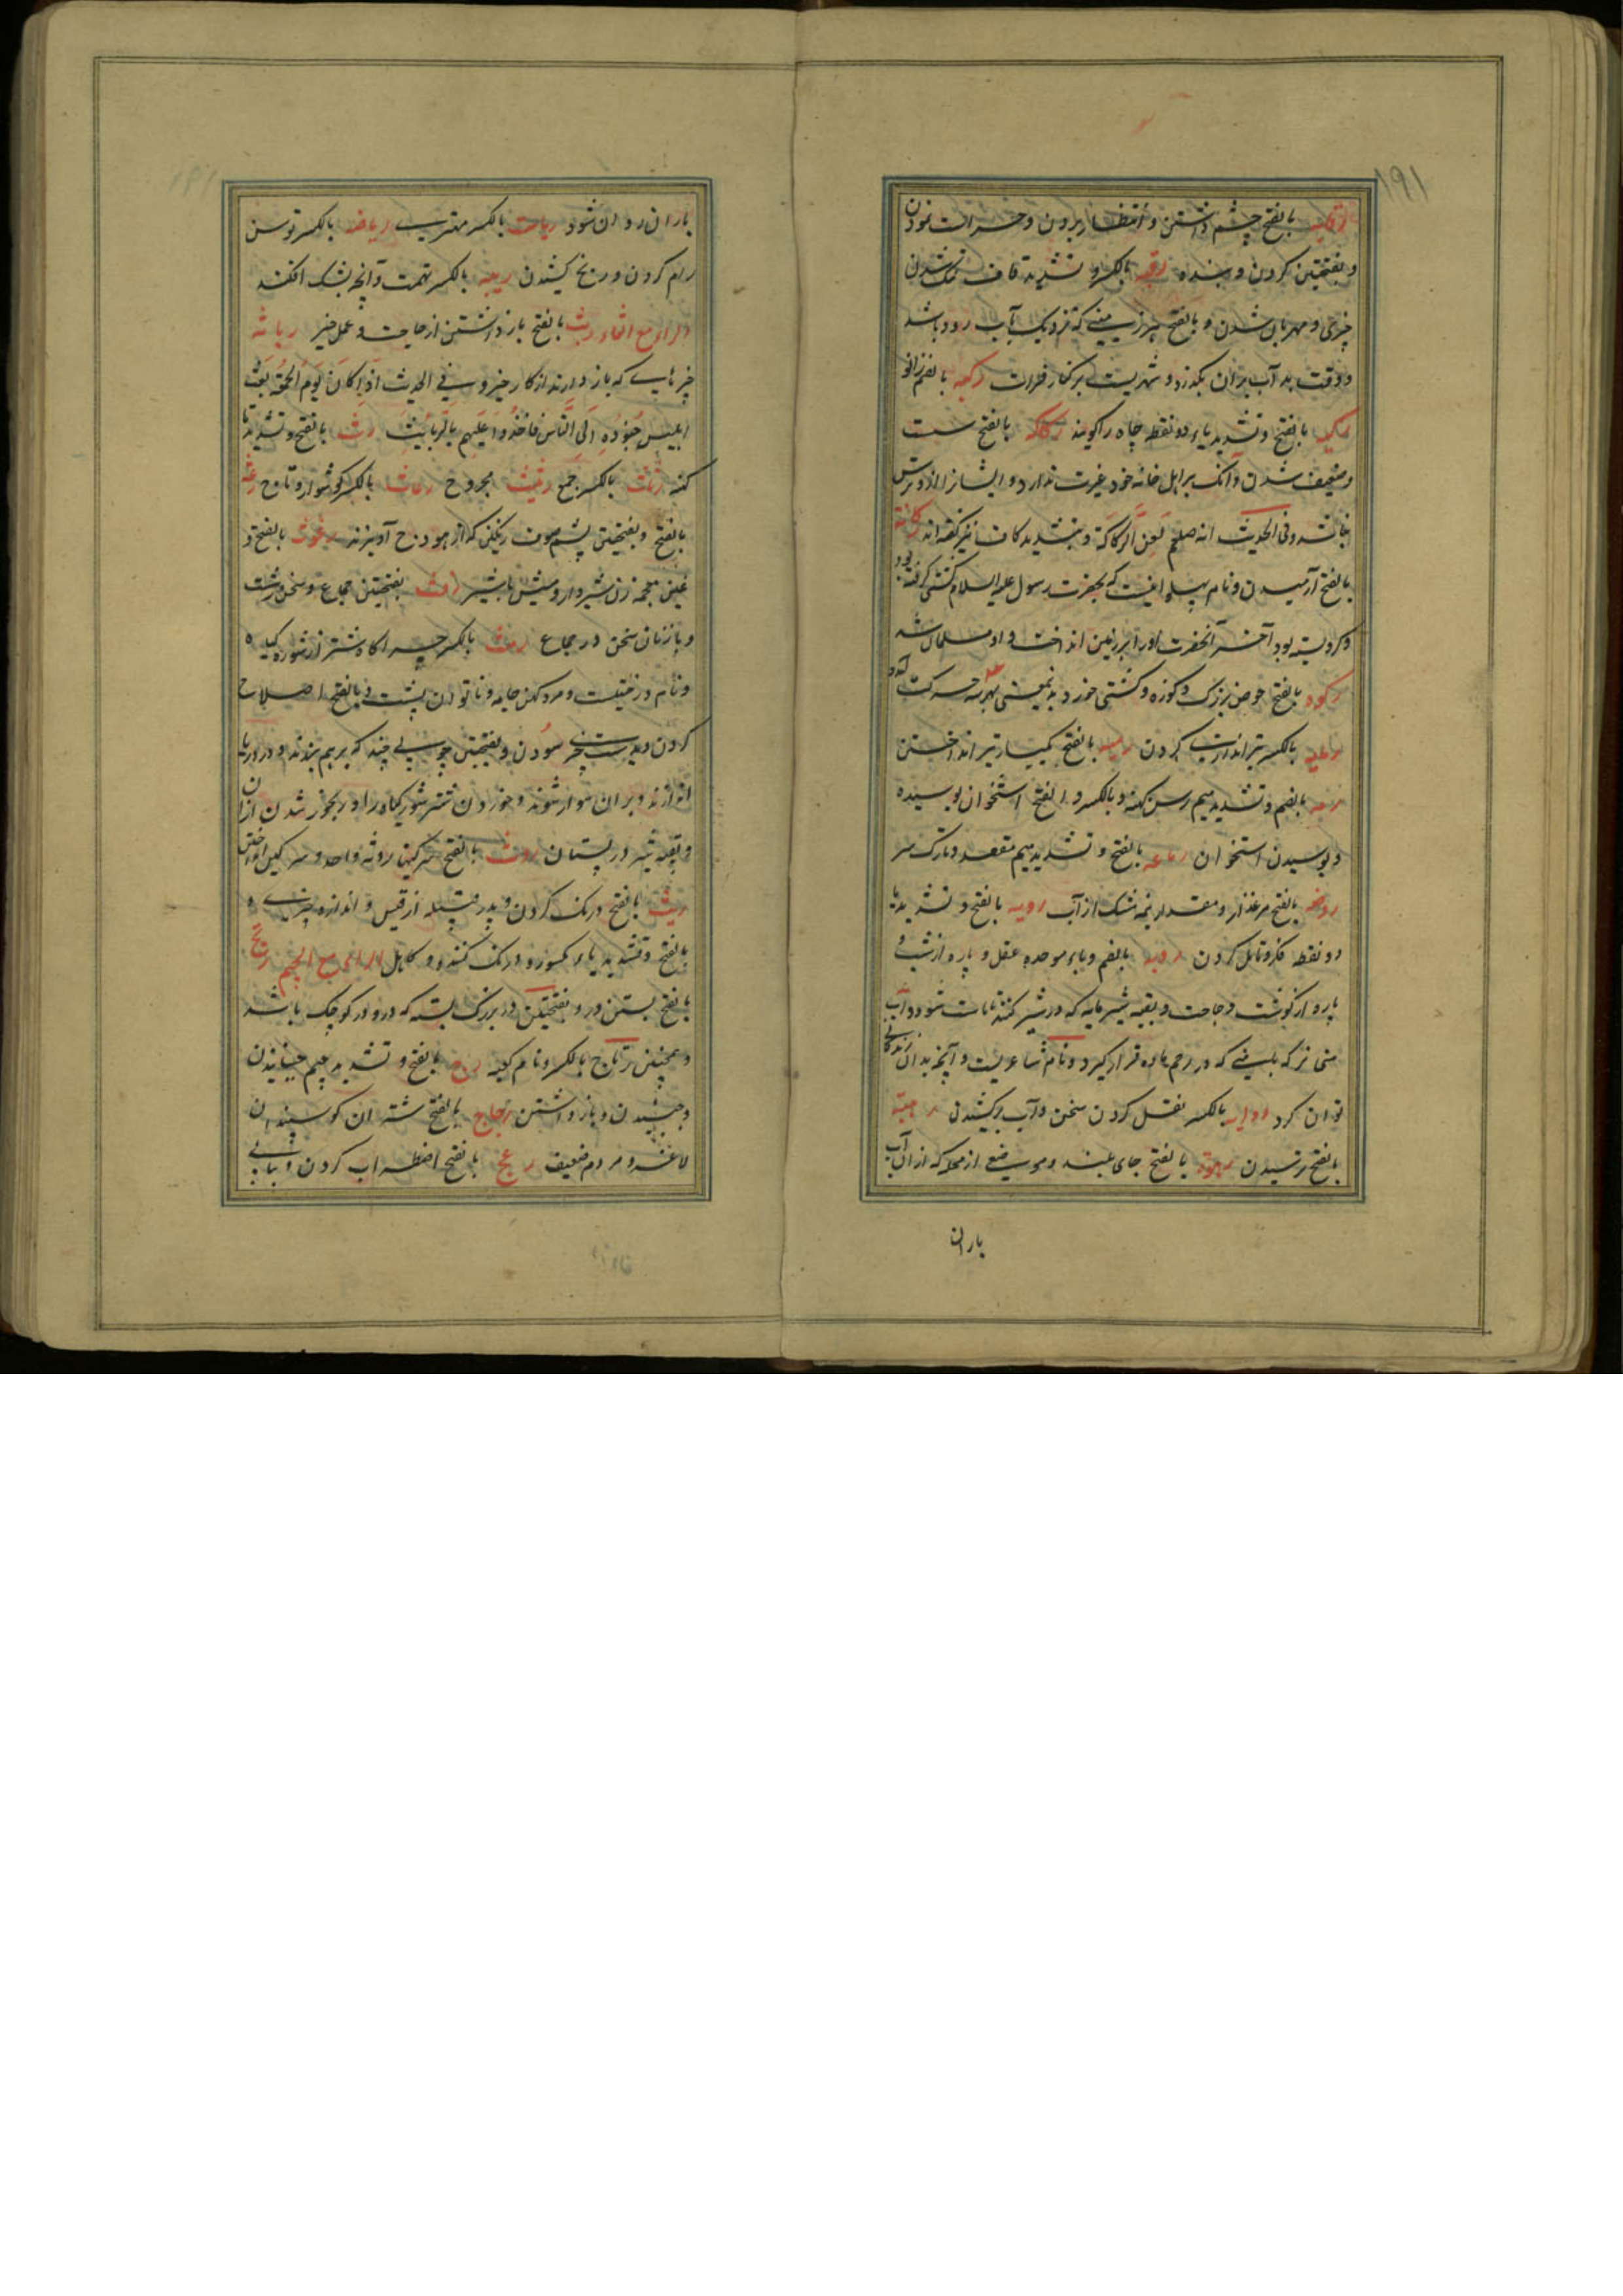 ۱۹۱
رقابه بالفتح چشم داشتن و انتظار بردن و حراست نمودن
و بفتحتین گردن و بنده رقه بالکسر و تشدید قاف تنک شدن
چیزی و مهربان شدن و بالفتح هر زمینی که نزدیک آب رود باشد
و وقت مد آب بران بگذرد و شهریست بر کنار فرات رکبه بالضم زانو
رکیه بالفتح و تشدید یاء دو نقطه چاه را کویند رکاکه بالفتح سست
و ضعیف شدن و آنکه بر اهل خانه خود غیرت ندارد و ایشانرا ازو ترس
نباشد و فی الحدیث انه صلعم لعن الرکاکة و بتشدید کاف نیز گفته اند رکانة
بالفتح آرمیدن و نام پهلوانیست که بحضرت رسول علیه السلام کشتی گرفته بود
و کرو بسته بود آخر آنحضرت او را بر زمین انداخت و او مسلمان شد
رکوه بالفتح حوض بزرک و کوزه و کشتی خورد بدین معنی بهر سه حرکت آمده
رمایه بالکسر تیراندازی کردن رمیه بالفتح یکبار تیر انداختن
رمه بالضم و تشدید میم رسن کهنه و بالکسر و الفتح استخوان بوسیده
و بوسیدن استخوان رماعه بالفتح و تشدید میم مقعد و تارک سر
روضه بالفتح مرغزار و مقدار نیمه مشک از آب رویه بالفتح و تشدید یا
دو نقطه فکر و تامل کردن روبه بالضم و باء موحده عقل و پاره از شب و
پاره از کوشت و حاجت و بقیه شیر مایه که در شیر کنند تا ماست شود و آب
منی نر که بلینی که در رحم ماده قرار گیرد و نام شاعریست و آنچه بدان زندگانی
توان کرد روایه بالکسر نقل کردن سخن و آب برکشیدن رهبة
بالفتح ترسیدن رهوة بالفتح جای بلند و موضع از محله که ازان آب
باران
باران روان شود ریاست بالکسر مهتری ریاضه بالکسر توسن
رام کردن و رنج کشیدن ریبه بالکسر تهمت و آنچه بشک افکند
الراء مع الثاء ربث بالفتح باز داشتن از حاجت و عمل خیر رباثه
چیزهایی که باز دارند از کار خیر و فی الحدیث اذا کان یوم الجمعة بعث
ابلیس جنوده الی الناس فاخذوا علیهم بالربائث رث بالفتح و تشدید ثا
کهنه رثاث بالکسر جمع رثیث مجروح رعاث بالکسر کوشوار و تاج رعثه
بالفتح و بفتحتین پشم صوف رنگین که از هودج آویزند رغوث بالفتح و
غین معجمه زن شیردار و میش با شیر رفث بفتحتین جماع و سخن زشت
و با زنان سخن در جماع رمث بالکسر چراگاه شتر از شوره گیاه
و نام درختیست و مرد کهن جامه و ناتوان پشت و بالفتح اصلاح
کردن و بدست چیزی سودن و بفتحتین چوبی چند که بر هم بندند و در دریا
اندازند و بران سوار شوند و خوردن شتر شور گیاه را و رنجور شدن ازان
و بقیه شیر در پستان روث بالفتح سرکین روثه واحد و سرکین انداختن
ریث بالفتح درنک کردن و پدر قبیله از قیس و اندازه چیزی و
بالفتح و تشدید یاء مکسوره درنک کننده و کاهل الراء مع الجیم رتاج
بالفتح بستن در و بفتحتین در بزرک بسته که درو در کوچک باشد
و همچنین رتاج بالکسر و نام کعبه رج بالفتح و تشدید جیم جنبانیدن
و جنبیدن و باز داشتن رجاج بالفتح شتران گوسپندان
لاغر و مردم ضعیف رعج بالفتح اضطراب کردن و بیتابی